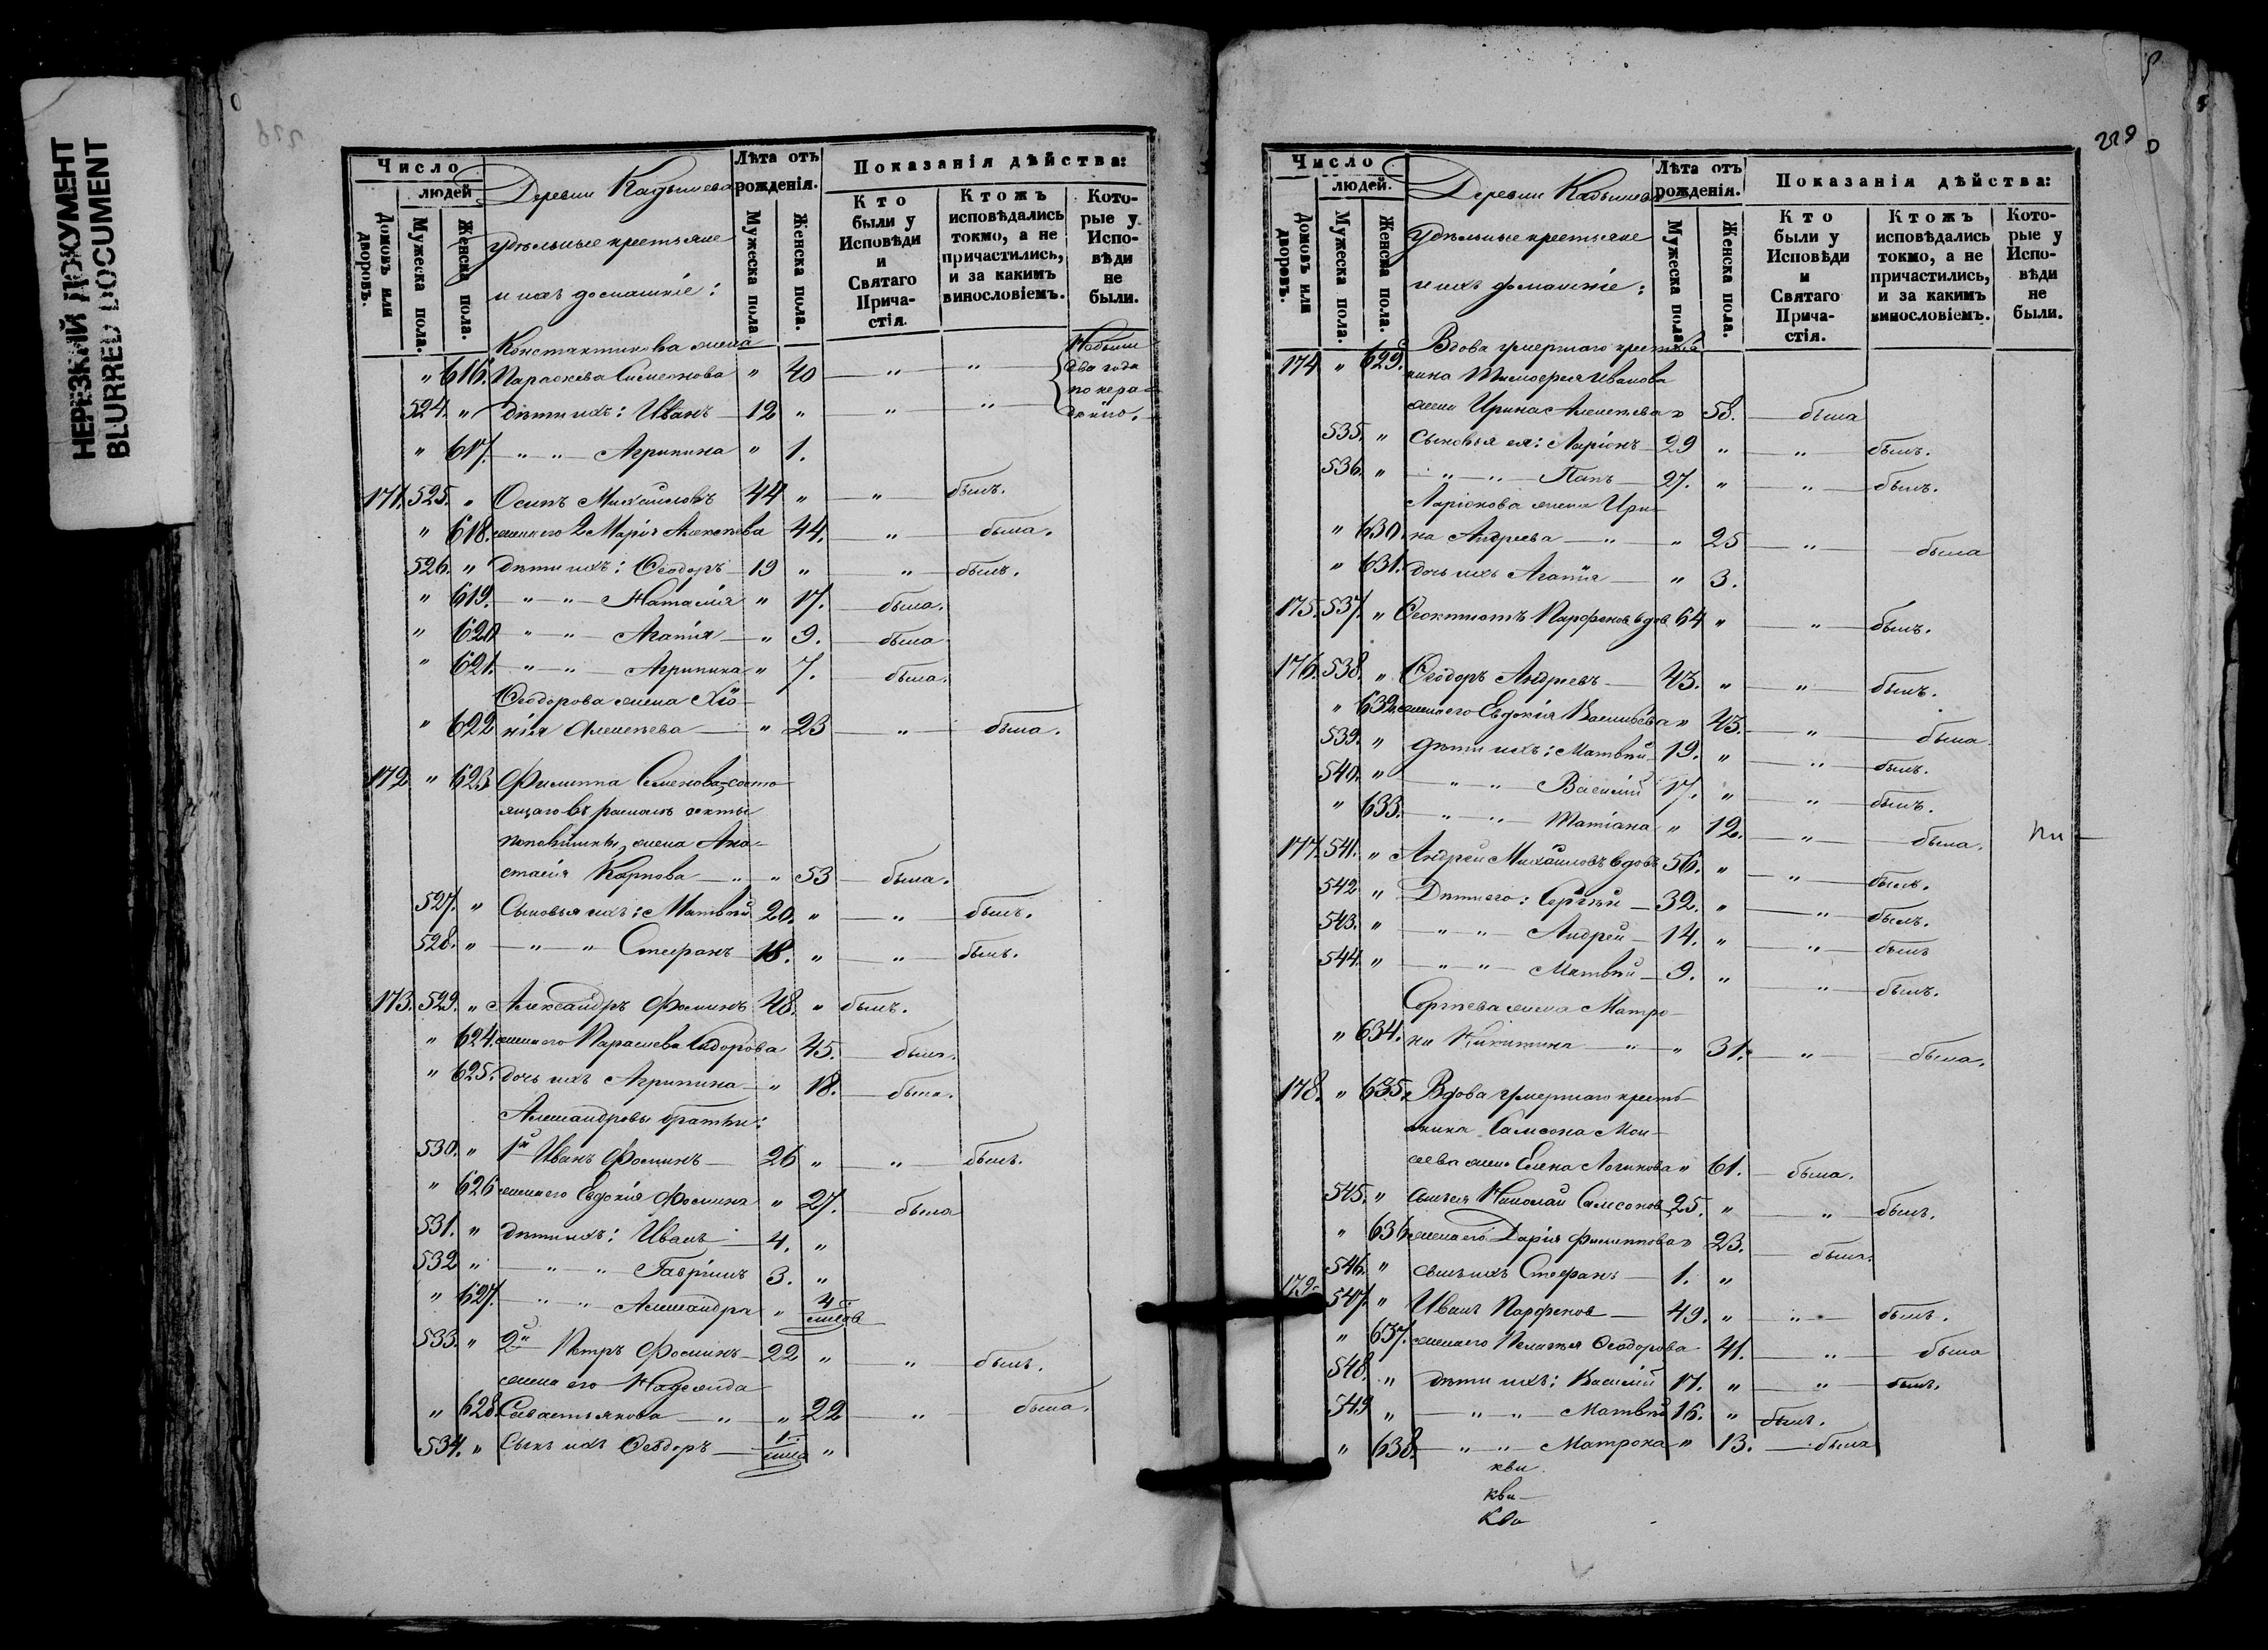 НЕРЕЗКИЙ ДОКУМЕНТ
BLURRED DOCUMENT
Число
людей
Домовъ или дворовъ.
Мужеска пола.
Женска пола.
Деревни Кадышева
удѣльные крестьяне
и ихъ домашніе:
Лѣта отъ рожденія.
Мужеска пола
Женска пола.
Показанія дѣйства:
Кто были у Исповѣди и Святаго Прича-стія.
Ктожъ исповѣдались токмо, а не причастились, и за какимъ винословіемъ.
Кото-рые у Испо-вѣди не были.
Константинова жена
" 616. Параскева Симеонова " 40 " " Небыли
два года
по нера-
дѣнію.
524. " дѣти ихъ: Иванъ 12 " " "
" 617. " " Агрипина " 1.
171. 525. " Осипъ Михайловъ 44 " " былъ.
" 618. жена его 2 Марія Алексѣева 44. " была.
526. " дѣти ихъ: Ѳеодоръ 19 " " былъ.
" 619. " " Наталія " 17. была.
" 620 " " Агапія " 9. была
" 621. " " Агрипина " 7. была.
Ѳеодорова жена Хіо-
" 622 нія Алексѣева " 23 " была.
172 " 623 Филиппа Семенова, состо-
ящаго въ расколѣ секты
поповщины, жена Ана-
стасія Карпова " " 53 была.
527. " Сыновья ихъ: Матвѣй 20. " " былъ.
528. " " " Стефанъ 18. " " былъ.
173. 529. " Александръ Фоминъ 48. " былъ.
" 624. жена его Параскева Сидорова 45. была.
" 625. дочь ихъ Агрипина " 18. была.
Александровы братья:
530. " 1й Иванъ Фоминъ 26 " " былъ.
" 626 жена его Евдокія Фомина " 27. была
531. " дѣти ихъ: Иванъ 4. "
532 " " " Гавріилъ 3. "
" 627. " " Александра " 4 мѣсяц
533. " 2й Петръ Фоминъ 22 " " былъ.
жена его Надежда
" 628. Савастьянова " " 22 " была.
534. " Сынъ ихъ Ѳеодоръ 1 "
229
Число
людей.
Домовъ или дворовъ.
Мужеска пола.
Женска пола.
Деревни Кадышева
удѣльные крестьяне
и ихъ домашніе:
Лѣта отъ рожденія.
Мужеска пола
Женска пола.
Показанія дѣйства:
Кто были у Исповѣди и Святаго Прича-стія.
Ктожъ исповѣдались токмо, а не причастились, и за какимъ винословіемъ.
Кото-рые у Испо-вѣди не были.
Вдова умершаго крестья-
174 " 629. нина Тимофея Иванова
жена Ирина Алексѣева " 58. была
535. " Сыновья ея: Ларіонъ 29 " " былъ.
536. " " " Папъ 27. " " былъ.
Ларіонова жена Ири-
" 630. на Андреева " " 25 " была
" 631. дочь ихъ Агапія " 3.
175. 537. " Ѳеоктистъ Парфеновъ вдов 64 " " былъ.
176. 538. " Ѳеодоръ Андреевъ 43. " " былъ.
" 632. жена его Евдокія Васильева " 43. " была
539. " дѣти ихъ: Матвѣй 19. " " былъ.
540. " " " Василій 17. " " былъ.
" 633. " " Татіана " 12. " была.
177. 541. " Андрей Михайловъ вдовъ 56. " " былъ.
542 " Дѣти его: Сергѣй 32. " " былъ.
543. " " " Андрей 14. " " былъ
544. " " " Матвѣй 9. " " былъ.
Сергѣева жена Матро-
" 634. на Никитина " " 31. " была.
178. " 635. Вдова умершаго кресть-
янина Самсона Мои-
сеева жена Елена Логинова " 61. была.
545. " сынъ ея Николай Самсоновъ 25. " " былъ.
" 636. жена его Дарія Филиппова " 23. была.
546. " сынъ ихъ Стефанъ 1. "
179. 547. " Иванъ Парфенов 49. " " былъ.
" 637. жена его Пелагея Ѳеодорова 41. " была
548. " дѣти ихъ: Василій 17. " " былъ.
549 " " " Матвѣй 16. " былъ.
" 638. " " Матрона " 13. была